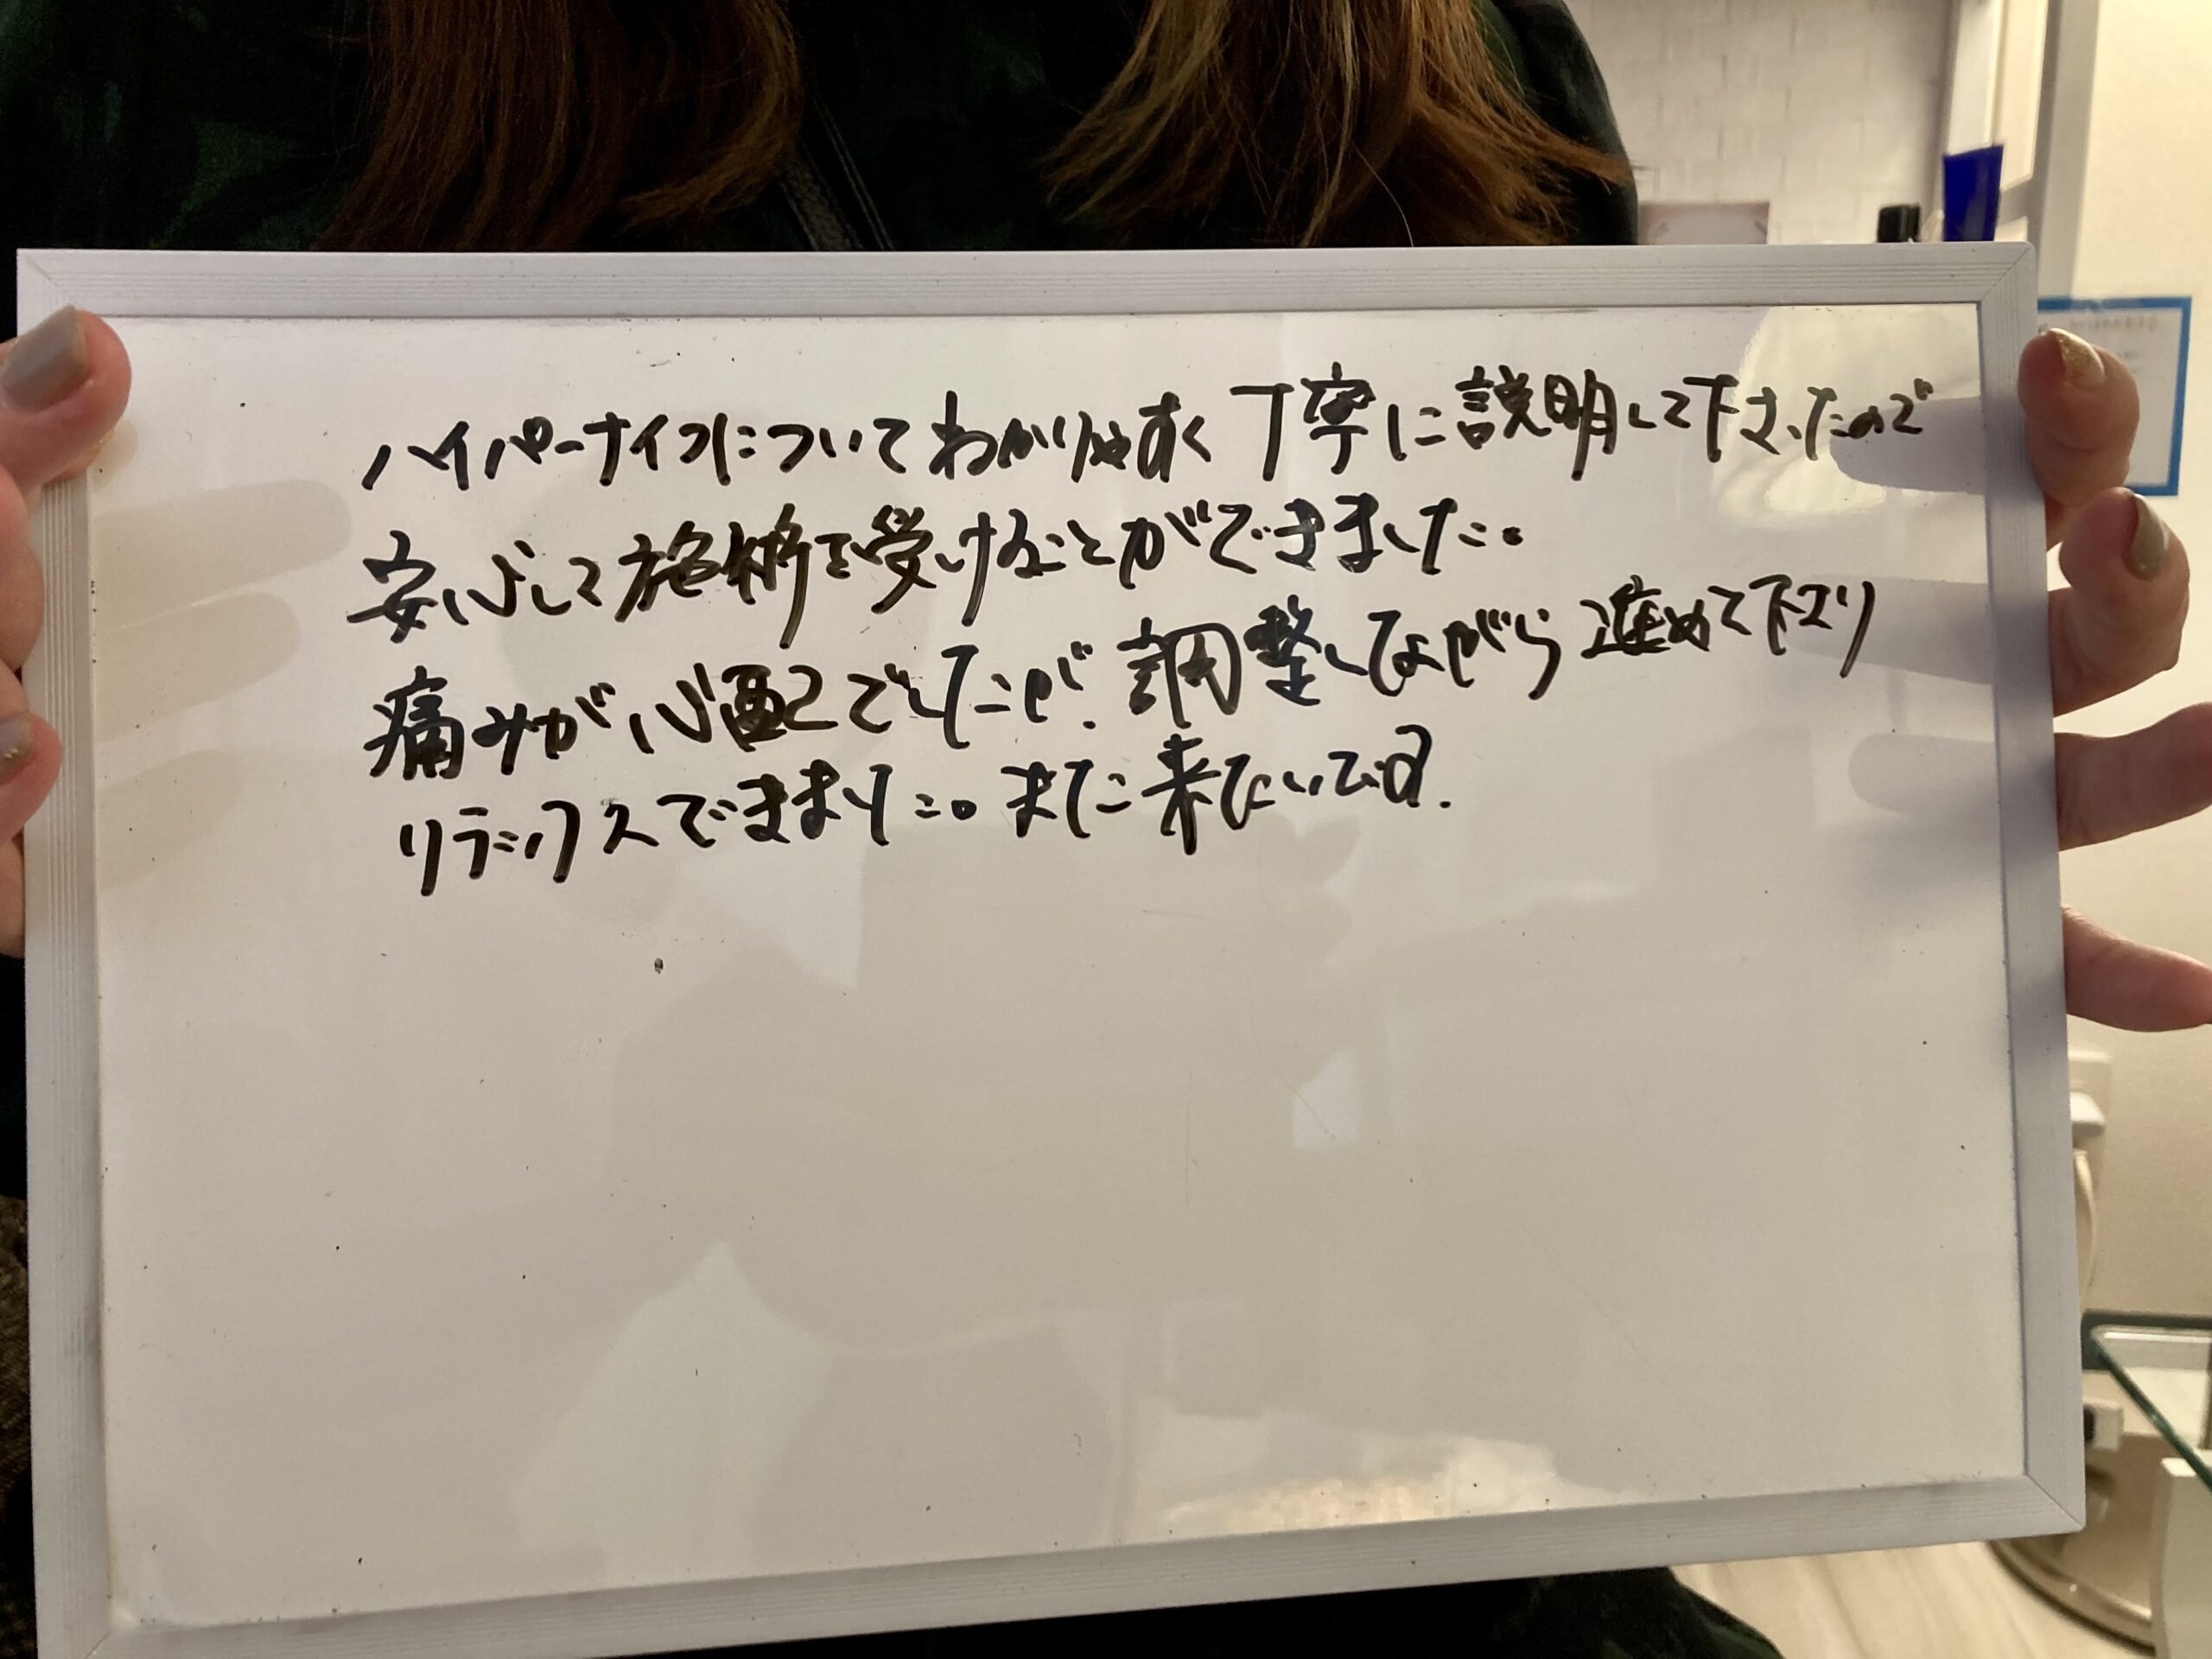 ハイパーナイフについてわかりやすく丁寧に説明して下さったので
安心して施術を受けることができました。
痛みが心配でしたが、調整しながら進めて下さり
リラックスできました。また来たいです。